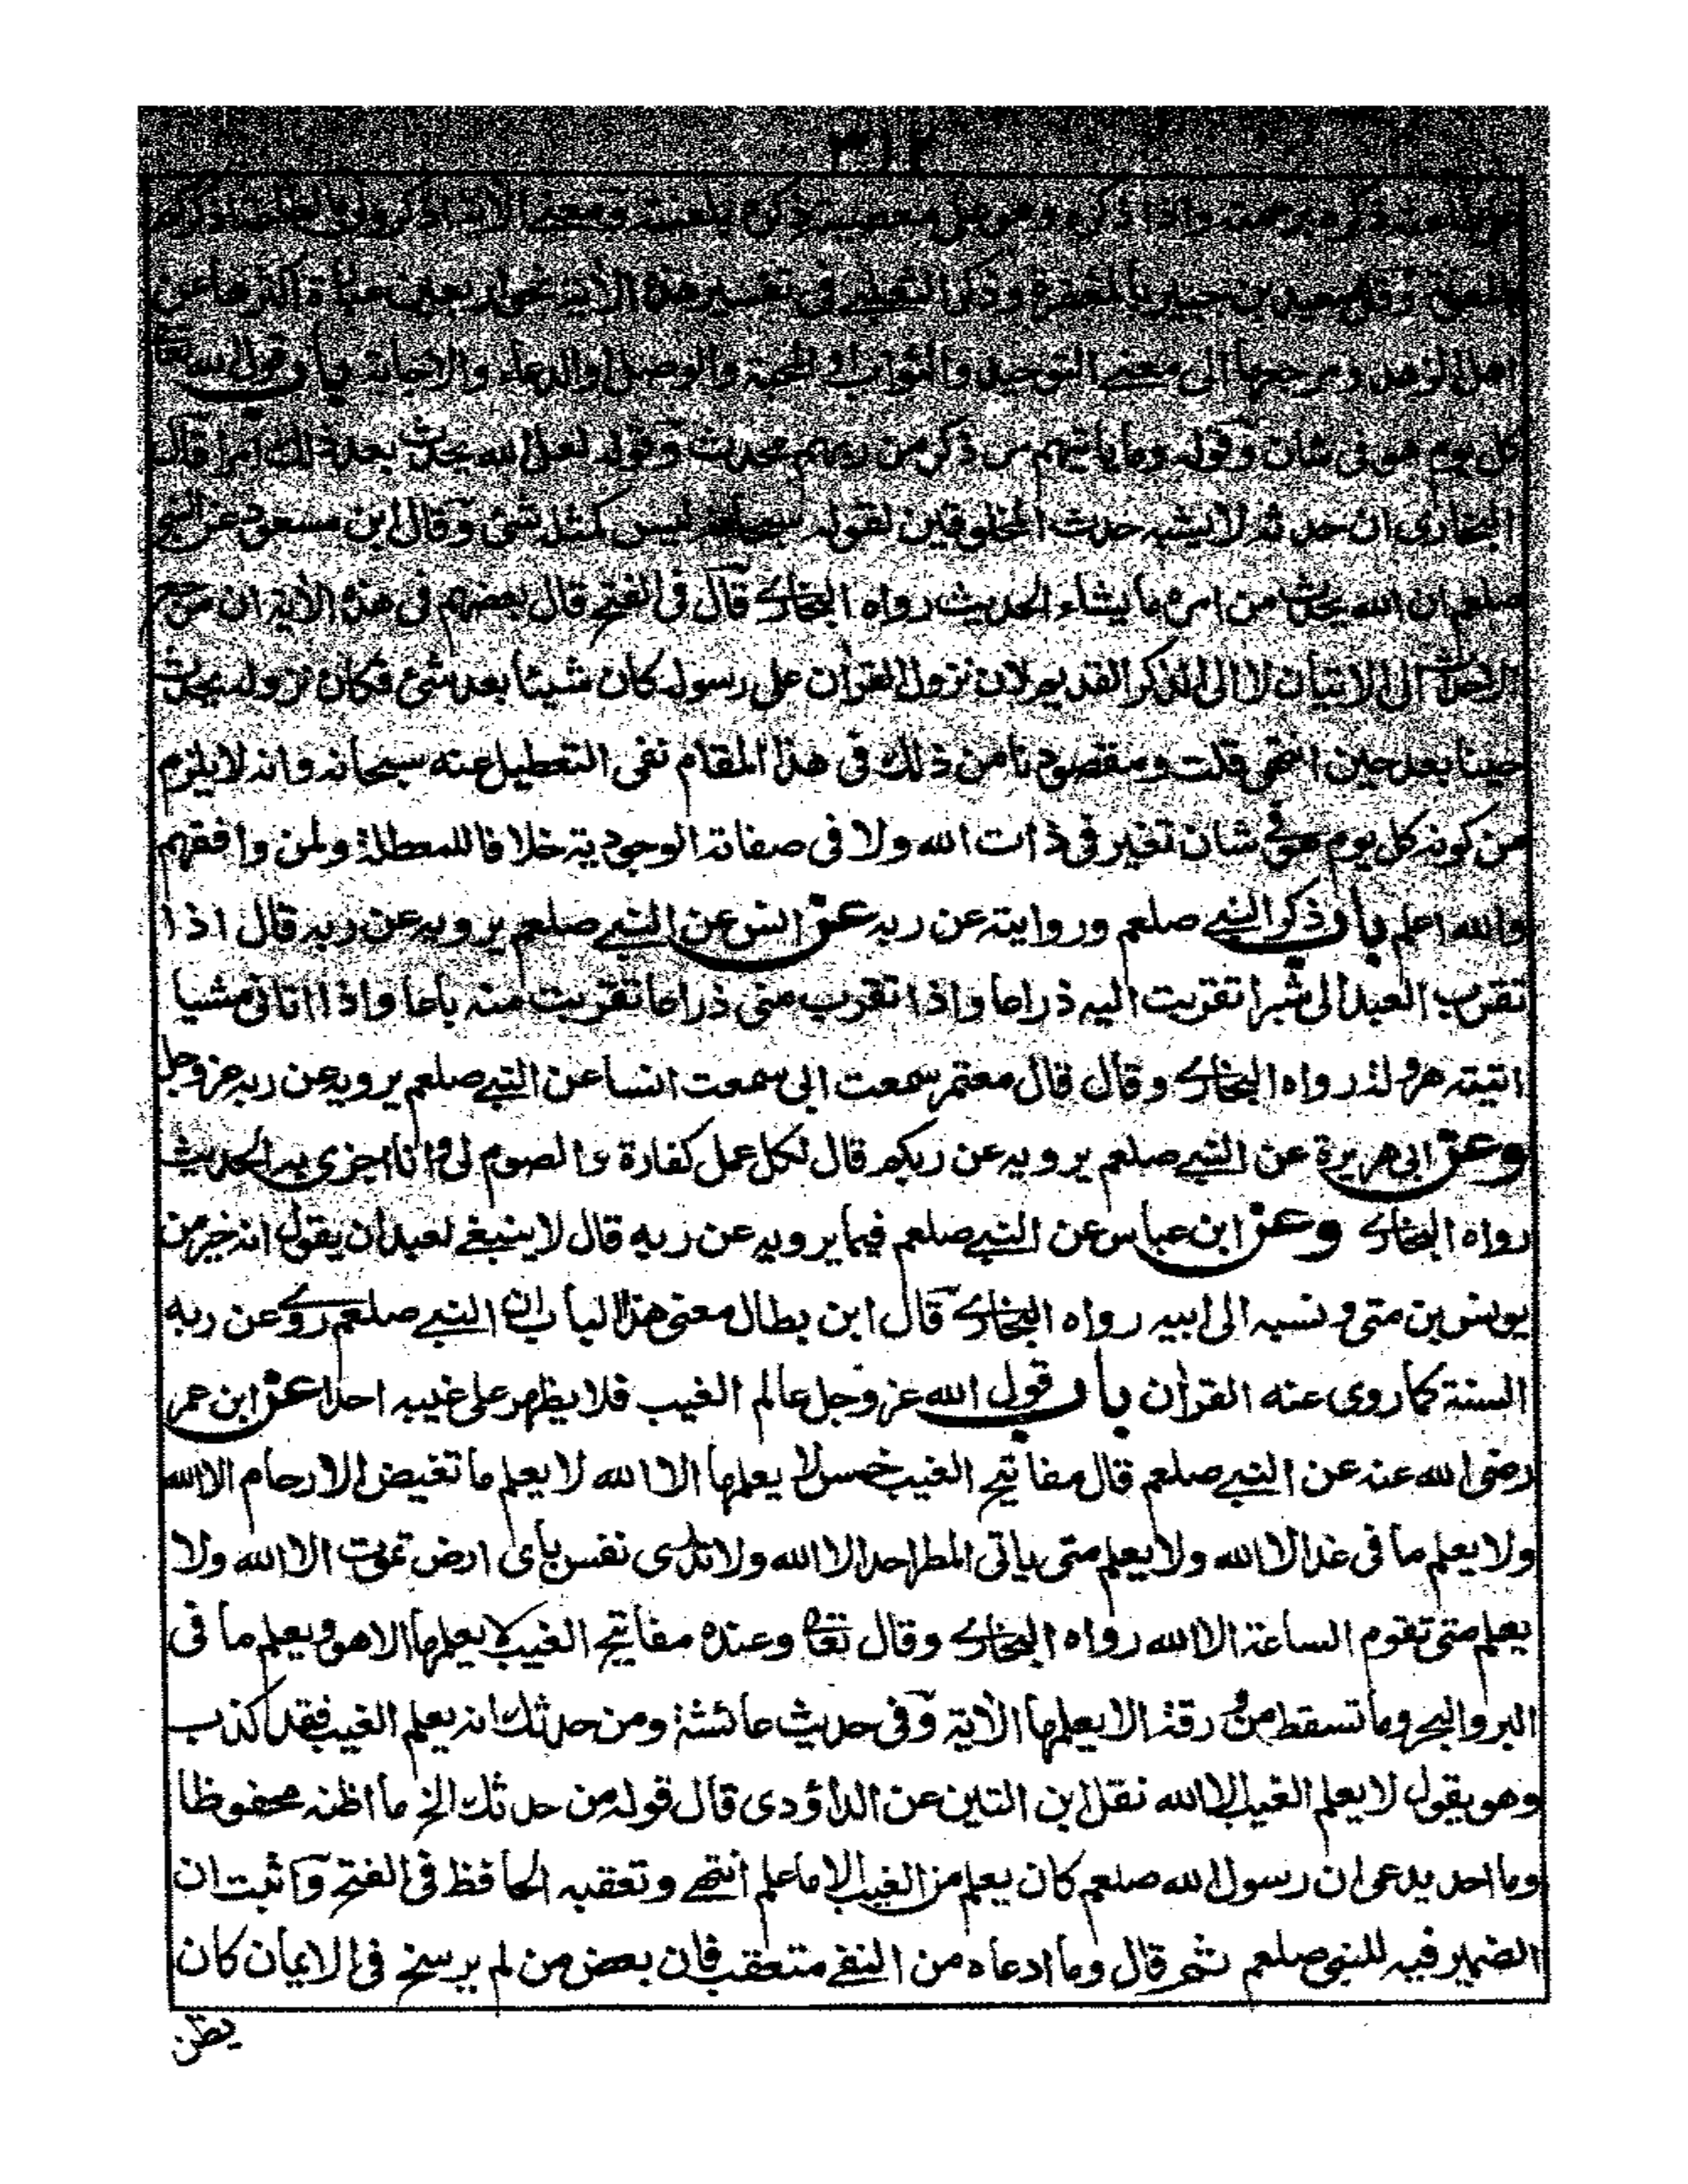 ٣١٢
ذكره برحمته واذا ذكره وهو على معصيته ذكره بلعنته ومعنى الآية اذكرونى بالطاعة اذكركم
بالمعونة وقال سعيد بن جبير بالمغفرة وذكر الثعلبى فى تفسير هذه الآية نحو اربعين عبارة اكثرها عن
اهل الزهد ومرجعها الى معنى التوحيد والثواب او المحبة والوصل او الدعاء والاجابة باب قول الله تعا
كل يوم هو فى شان وقوله وما ياتيهم من ذكر من ربهم محدث وقوله لعل الله يحدث بعد ذلك امرا قال
البخارى ان حدثه لا يشبه حدث المخلوقين لقوله ليس كمثله شئ وقال ابن مسعود عن النبى
صلعم ان الله يحدث من امره ما يشاء الحديث رواه البخارى قال فى الفتح قال بعضهم فى هذه الآية ان مرجع
الاحداث الى الاتيان لا الى الذكر القديم لان نزول القرآن على رسوله كان شيئا بعد شئ فكان نزوله يحدث
حينا بعد حين انتهى قلت ومقصودنا من ذلك فى هذا المقام نفى التعطيل عنه سبحانه وانه لا يلزم
من كونه كل يوم هو فى شان تغير فى ذات الله ولا فى صفاته الوجودية خلافا للمعطلة ولمن وافقهم
والله اعلم باب ذكر النبى صلعم وروايته عن ربه عن انس عن النبى صلعم يرويه عن ربه قال اذا
تقرب العبد الى شبرا تقربت اليه ذراعا واذا تقرب منى ذراعا تقربت منه باعا واذا اتانى مشيا
اتيته هرولة رواه البخارى وقال قال معتمر سمعت ابى سمعت انسا عن النبى صلعم يرويه عن ربه عز وجل
وعن ابى هريرة عن النبى صلعم يرويه عن ربكم قال لكل عمل كفارة والصوم لى وانا اجزى به الحديث
رواه البخارى وعن ابن عباس عن النبى صلعم فيما يرويه عن ربه قال لا ينبغى لعبد ان يقول انه خير من
يونس بن متى ونسبه الى ابيه رواه البخارى قال ابن بطال معنى هذا الباب ان النبى صلعم روى عن ربه
السنة كما روى عنه القرآن باب قول الله عز وجل عالم الغيب فلا يظهر على غيبه احدا عن ابن عمر
رضى الله عنه عن النبى صلعم قال مفاتيح الغيب خمس لا يعلمها الا الله لا يعلم ما تغيض الارحام الا الله
ولا يعلم ما فى غد الا الله ولا يعلم متى ياتى المطر احد الا الله ولا تدرى نفس باى ارض تموت الا الله ولا
يعلم متى تقوم الساعة الا الله رواه البخارى وقال تعا وعنده مفاتيح الغيب لا يعلمها الا هو ويعلم ما فى
البر والبحر وما تسقط من ورقة الا يعلمها الآية وفى حديث عائشة ومن حدثك انه يعلم الغيب فقد كذب
وهو يقول لا يعلم الغيب الا الله نقل ابن التين عن الداؤدى قال قوله من حدثك الخ ما اظنه محفوظا
وما احد يدعى ان رسول الله صلعم كان يعلم من الغيب الا ما علم انتهى وتعقبه الحافظ فى الفتح واثبت ان
الضمير فيه للنبى صلعم ثم قال وما ادعاه من النفى متعقب فان بعض من لم يرسخ فى الايمان كان
يظن